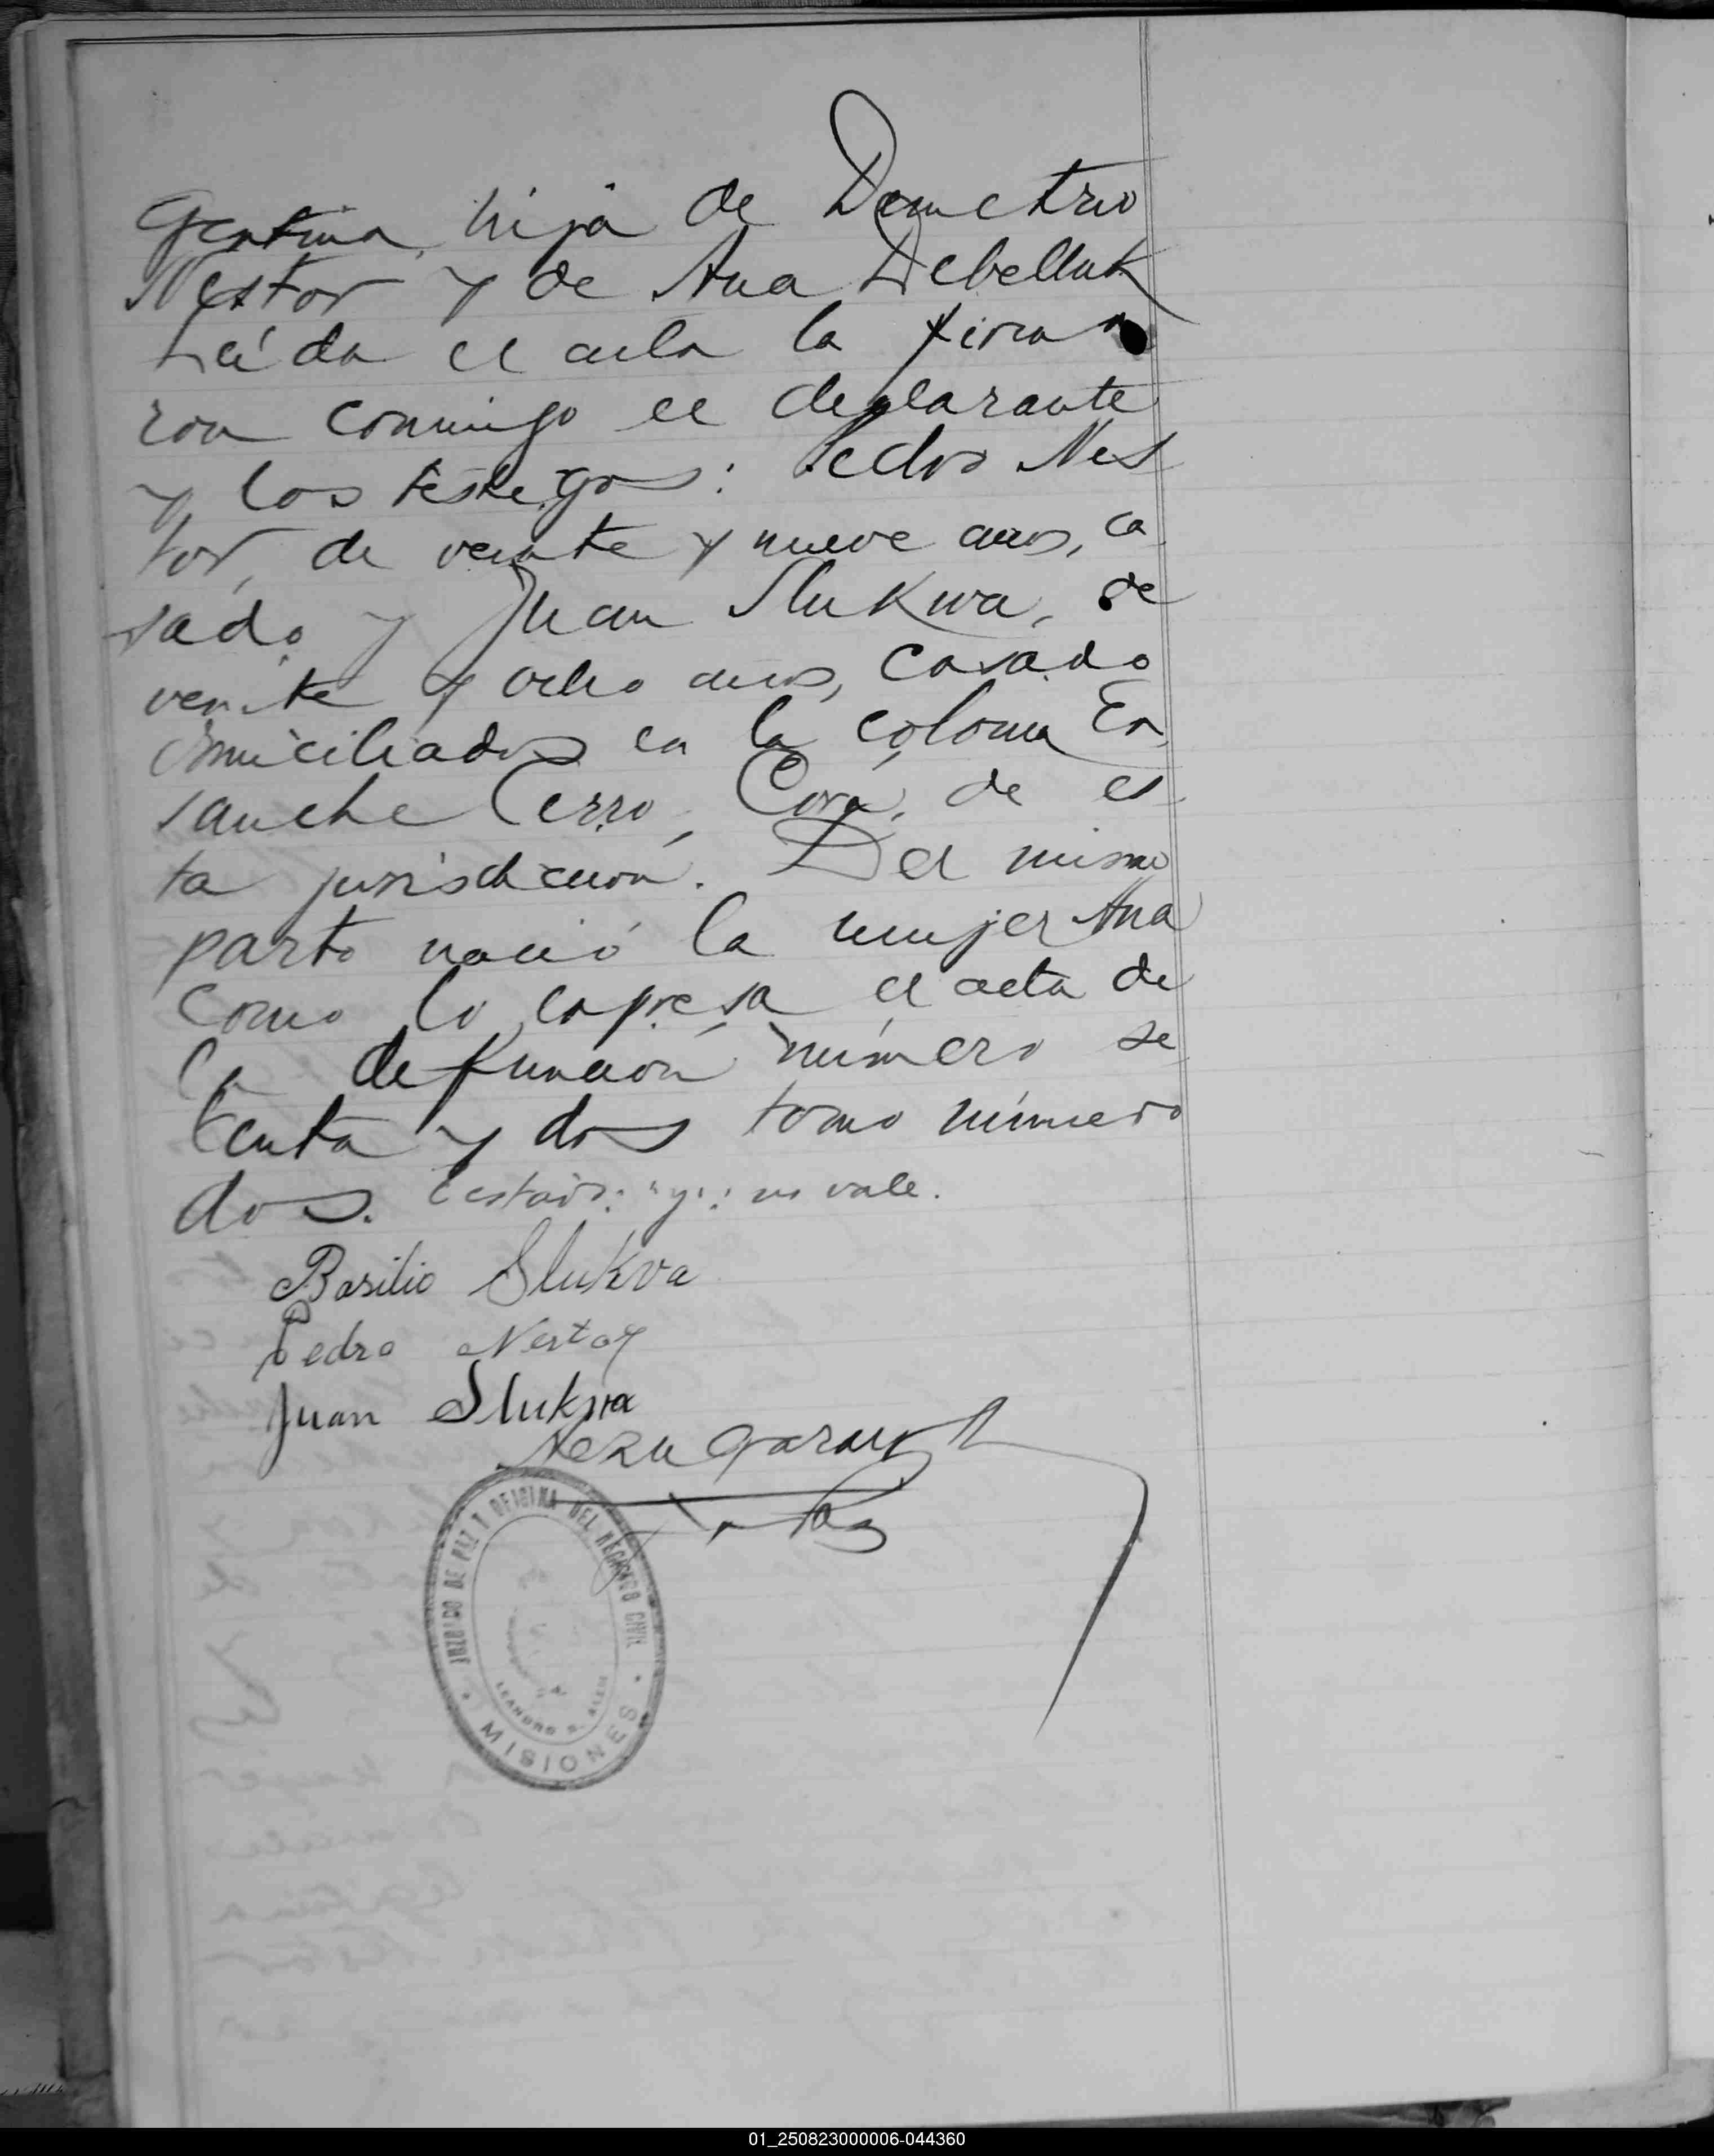 gentina, hija de Demetrio
Nestor y de Ana Debelluk
Leída el acta la firma
ron conmigo el declarante
y los testigos: Pedro Nes
tor, de veinte y nueve años, ca
sado y Juan Slukwa, de
veinte y ocho años, casado
domiciliados en la colonia En
sanche Cerro Corá, de es
ta jurisdicción. Del mismo
parto nació la mujer Ana
como lo expresa el acta de
la defunción número se
tenta y dos tomo número
dos. Testado: "y": no vale.
Basilio Slukva
Pedro Nestor
Juan Slukwa
JUZGADO DE PAZ Y OFICINA DEL REGISTRO CIVIL
LEANDRO N. ALEM
MISIONES
01_250823000006-044360